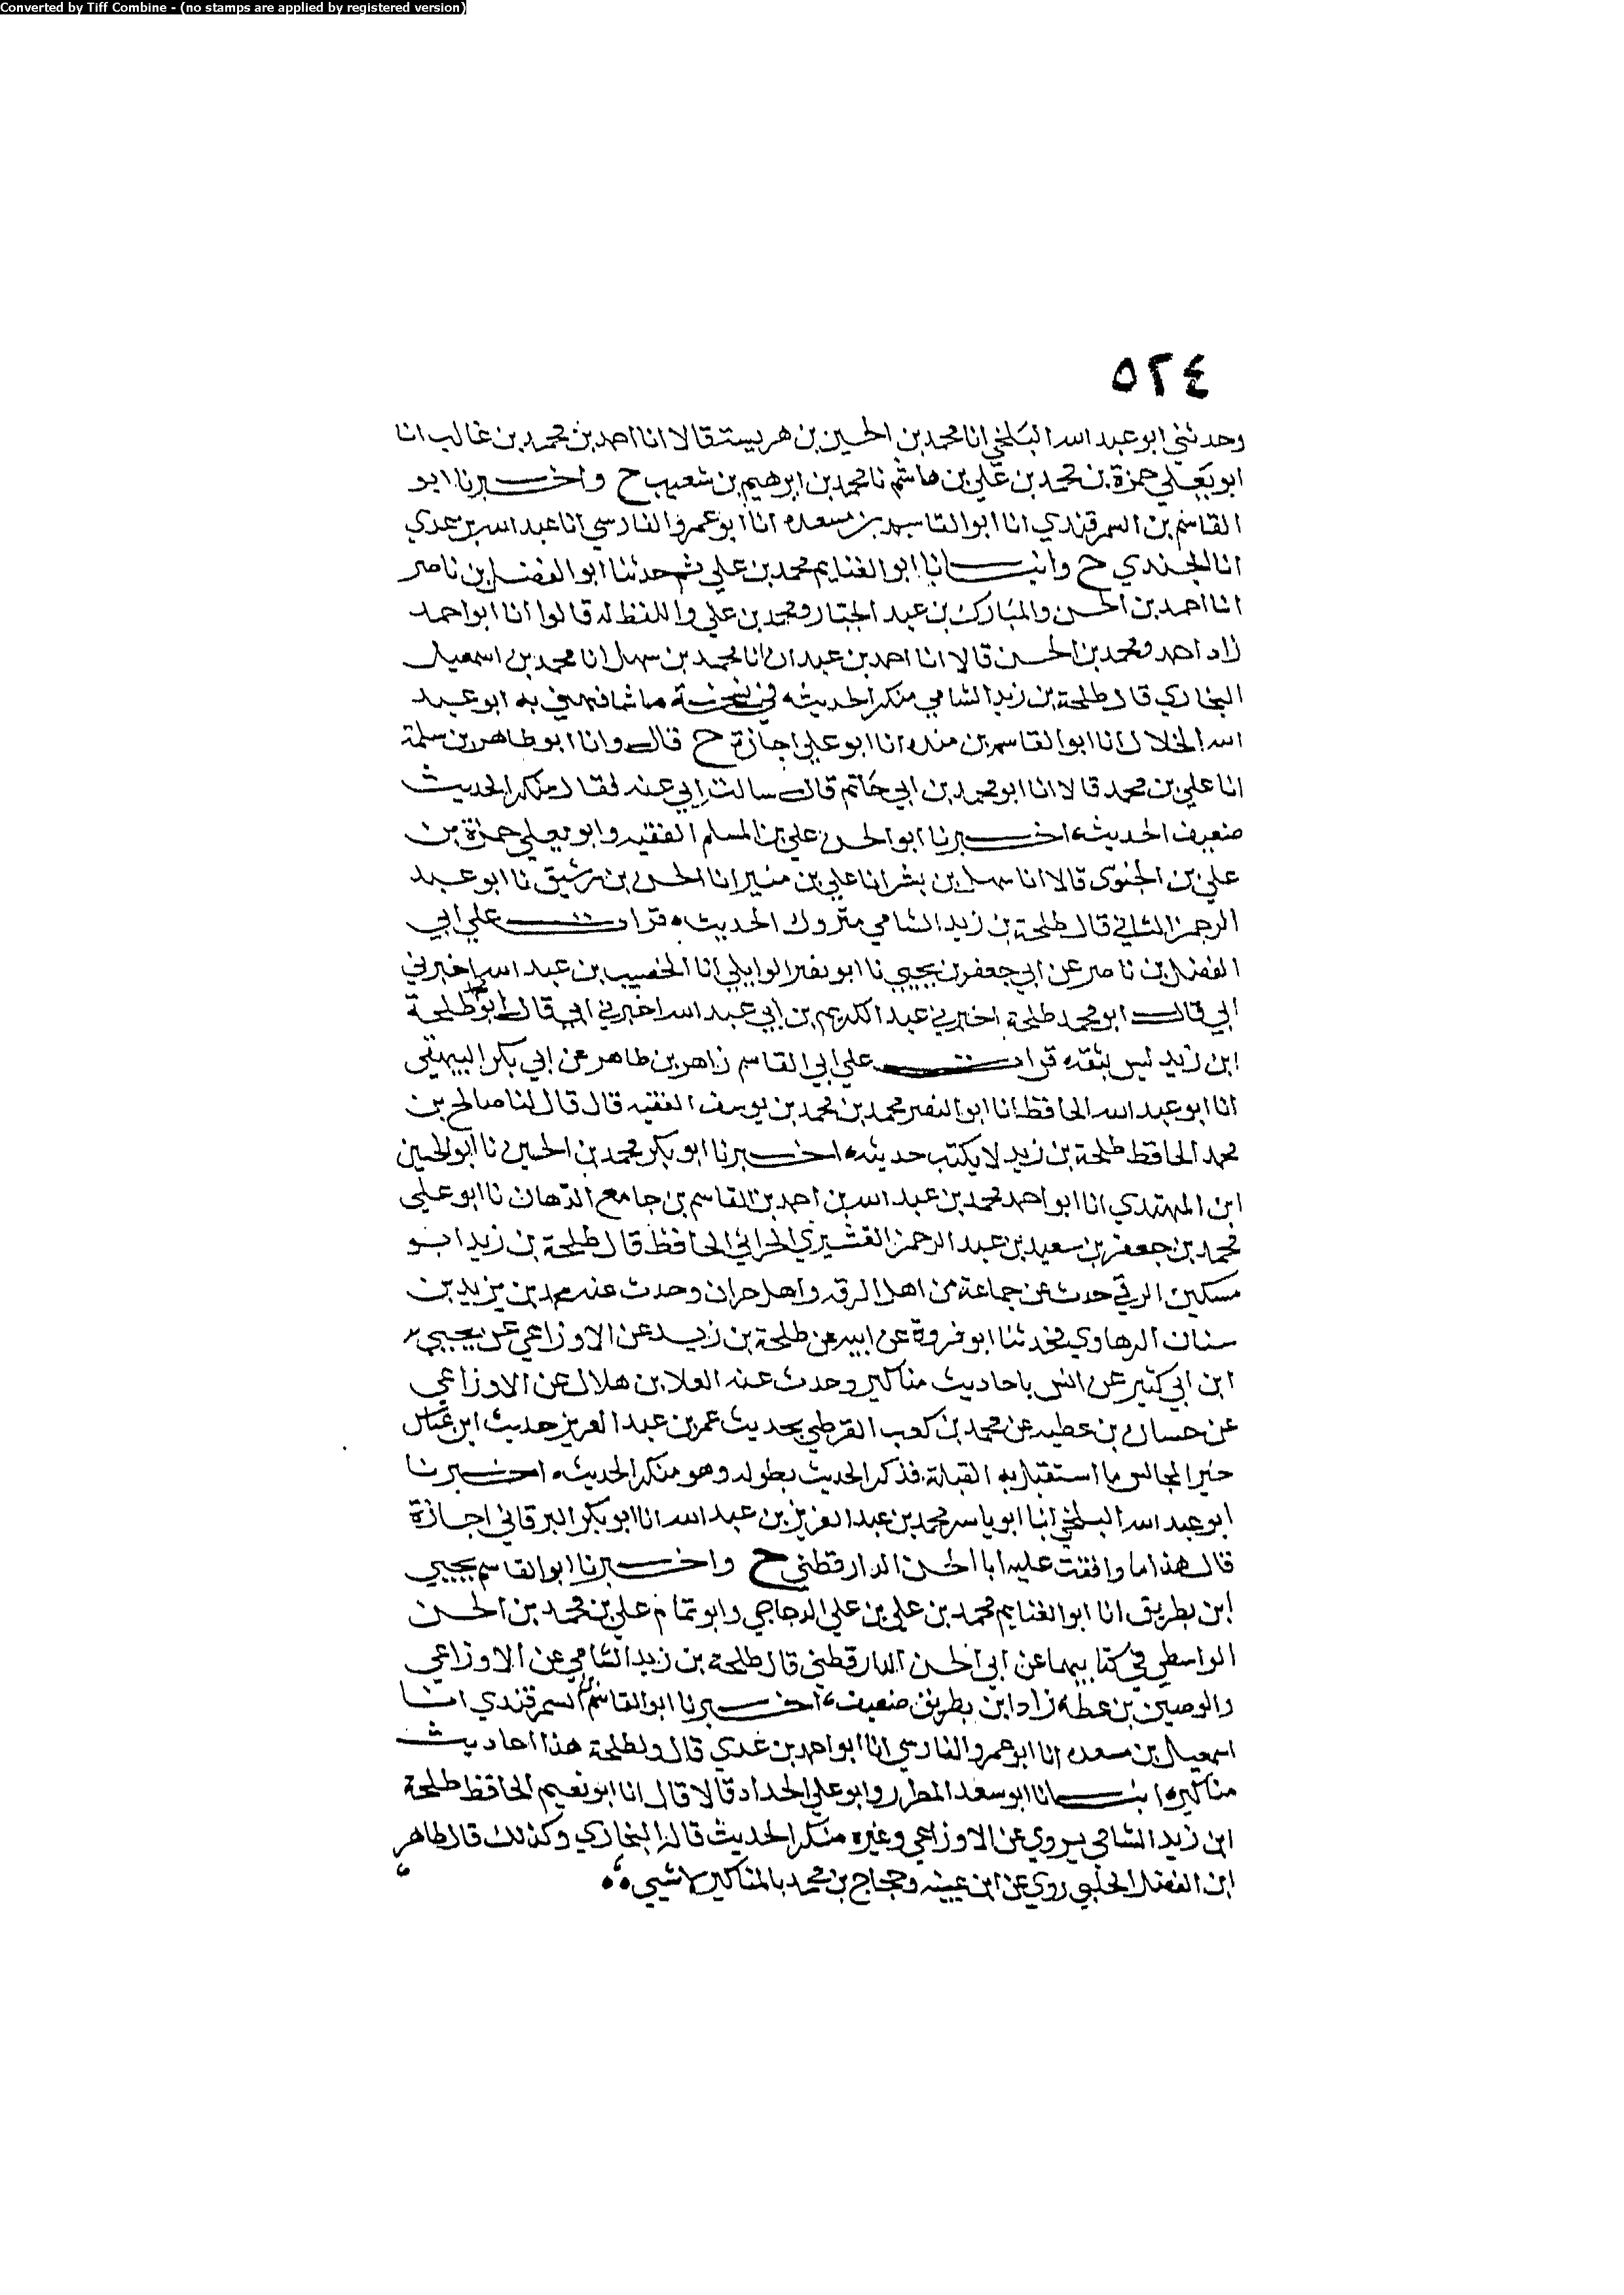 Converted by Tiff Combine - (no stamps are applied by registered version)
٥٢٤
وحدثني ابو عبد الله البلخي انا محمد بن الحسين بن هريسة قالا انا احمد بن محمد بن غالب انا
ابو يعلي حمزة بن محمد بن علي بن هاشم نا محمد بن ابرهيم بن شعيب ح واخبرنا ابو
القاسم بن السمرقندي انا ابو القاسم بن مسعده انا ابو عمرو الفارسي انا عبد الله بن عدي
انا الجندي ح وانبانا ابو الغنايم محمد بن علي ثم حدثنا ابو الفضل بن ناصر
انا احمد بن الحسن والمبارك بن عبد الجبار ومحمد بن علي واللفظ له قالوا انا ابو احمد
زاد احمد ومحمد بن الحسن قالا انا احمد بن عبدان انا محمد بن سهل انا محمد بن اسمعيل
البخاري قال طلحة بن زيد الشامي منكر الحديث في نسخة ما شافهني به ابو عبد
الله الخلال انا ابو القاسم بن منده انا ابو علي اجازة ح قال وانا ابو طاهر بن سلمة
انا علي بن محمد قالا انا ابو محمد بن ابي حاتم قال سالت ابي عنه فقال منكر الحديث
ضعيف الحديث اخبرنا ابو الحسن علي بن المسلم الفقيه وابو يعلي حمزة بن
علي بن الحبوبي قالا انا سهل بن بشر انا علي بن منير انا الحسن بن رشيق نا ابو عبد
الرحمن النسائي قال طلحة بن زيد الشامي متروك الحديث قرات علي ابي
الفضل بن ناصر عن ابي جعفر بن يحيى نا ابو نصر الوايلي انا الخصيب بن عبد الله اخبرني
ابي قال ابو محمد طلحة اخبرني عبد الكريم بن ابي عبد الله اخبرني ابي قال ابو محمد طلحة
ابن زيد ليس بثقه قرات علي ابي القاسم زاهر بن طاهر عن ابي بكر البيهقي
انا ابو عبد الله الحافظ انا ابو النضر محمد بن محمد بن يوسف الفقيه قال قال لنا صالح بن
محمد الحافظ طلحة بن زيد لا يكتب حديثه اخبرنا ابو بكر محمد بن الحسين نا ابو الحسين
ابن المهتدي انا ابو احمد محمد بن عبد الله بن احمد بن القاسم بن جامع الدهان نا ابو علي
محمد بن جعفر بن سعيد بن عبد الرحمن القشيري الحراني الحافظ قال طلحة بن زيد ابو
مسكين الرقي حدث عن جماعة من اهل الرقه واهل حران وحدث عنه محمد بن يزيد بن
سنان الرهاوي فحدثنا ابو فروة عن ابيه عن طلحة بن زيد عن الاوزاعي عن يحيى
ابن ابي كثير عن انس باحاديث مناكير وحدث عنه العلا بن هلال عن الاوزاعي
عن حسان بن عطيه عن محمد بن كعب القرظي بحديث عمر بن عبد العزيز حديث ابن عباس
خير المجالس ما استقبل به القبلة فذكر الحديث بطوله وهو منكر الحديث اخبرنا
ابو عبد الله البلخي انا ابو ياسر محمد بن عبد العزيز بن عبد الله انا ابو بكر البرقاني اجازة
قال هذا ما وافقت عليه ابا الحسن الدارقطني ح واخبرنا ابو القاسم يحيى
ابن بطريق انا ابو الغنايم محمد بن علي بن علي الدجاجي وابو تمام علي بن محمد بن الحسن
الواسطي في كتابيهما عن ابي الحسن الدارقطني قال طلحة بن زيد الشامي عن الاوزاعي
والوضين بن عطا زاد ابن بطريق ضعيف اخبرنا ابو القاسم بن السمرقندي انا
اسمعيل بن مسعده انا ابو عمرو الفارسي انا ابو احمد بن عدي قال ولطلحة هذا احاديث
مناكير انبانا ابو سعد المطرز وابو علي الحداد قالا قال انا ابو نعيم الحافظ طلحة
ابن زيد الشامي يروي عن الاوزاعي وغيره منكر الحديث قاله البخاري وكذلك قال طاهر
ابن الفضل الحلبي روي عن ابن عيينه وحجاج بن محمد بالمناكير لا شيي